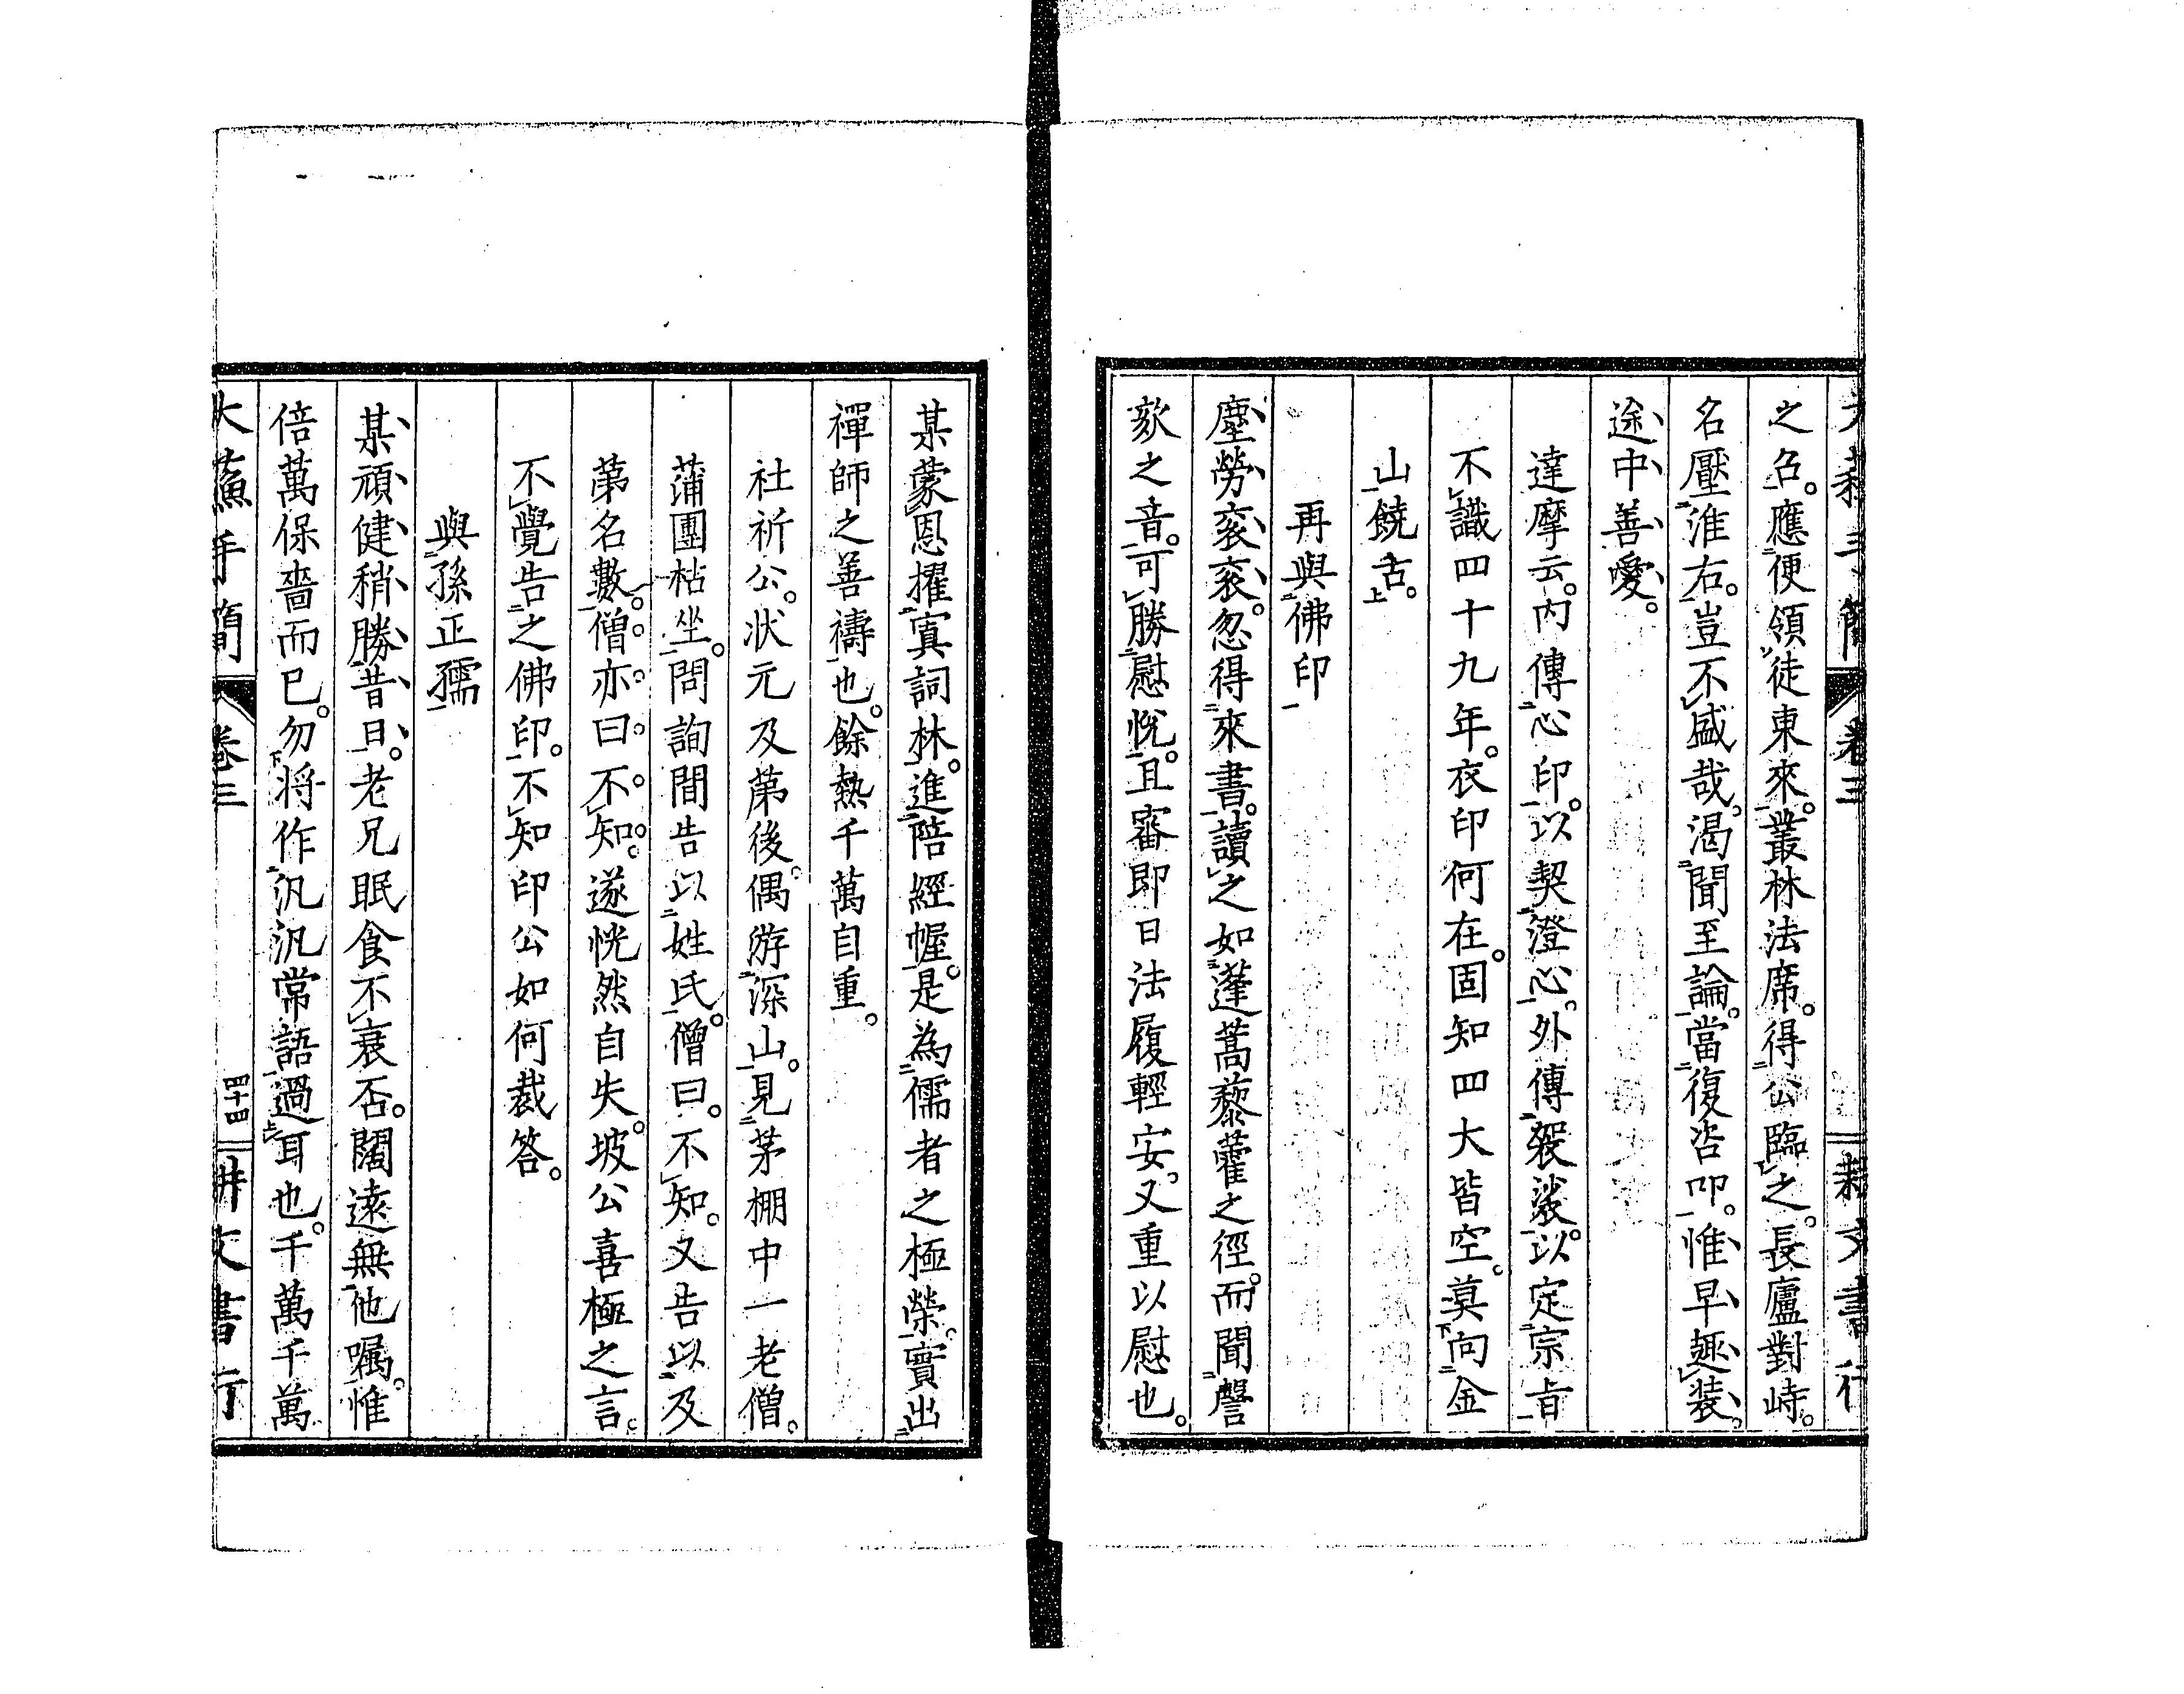 之召。應便領徒東來。叢林法席。得公臨之。長廬對峙。
名壓淮右。豈不盛哉。渴聞至論。當復咨叩。惟早趣裝。
途中善愛。
達摩云。内傳心印。以契澄心。外傳袈裟。以定宗旨
不識四十九年。衣印何在。固知四大皆空。莫向金
山饒舌。
再與佛印
塵勞衮衮。忽得來書。讀之如蓬蒿藜藿之徑。而聞謦
欬之音。可勝慰悅。且審即日法履輕安。又重以慰也。
某蒙恩擢寘詞林。進陪經幄。是為儒者之極榮。實出
禪師之善禱也。餘熱千萬自重。
社祈公。狀元及苐後。偶游深山。見茅棚中一老僧。
蒲團枯坐。問詢間告以姓氏。僧曰。不知。又告以及
苐名數。僧亦曰不知。遂恍然自失。坡公喜極之言。
不覺告之佛印。不知印公如何裁答。
與孫正孺
某頑健稍勝昔日。老兄眠食不衰否。闊遠無他囑。惟
倍萬保嗇而已。勿將作汎汎常語過耳也。千萬千萬
大蘇手簡 卷三 四十四 耕文書行